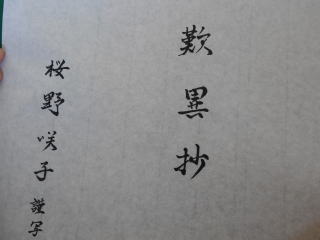 歎異抄
桜野咲子謹写